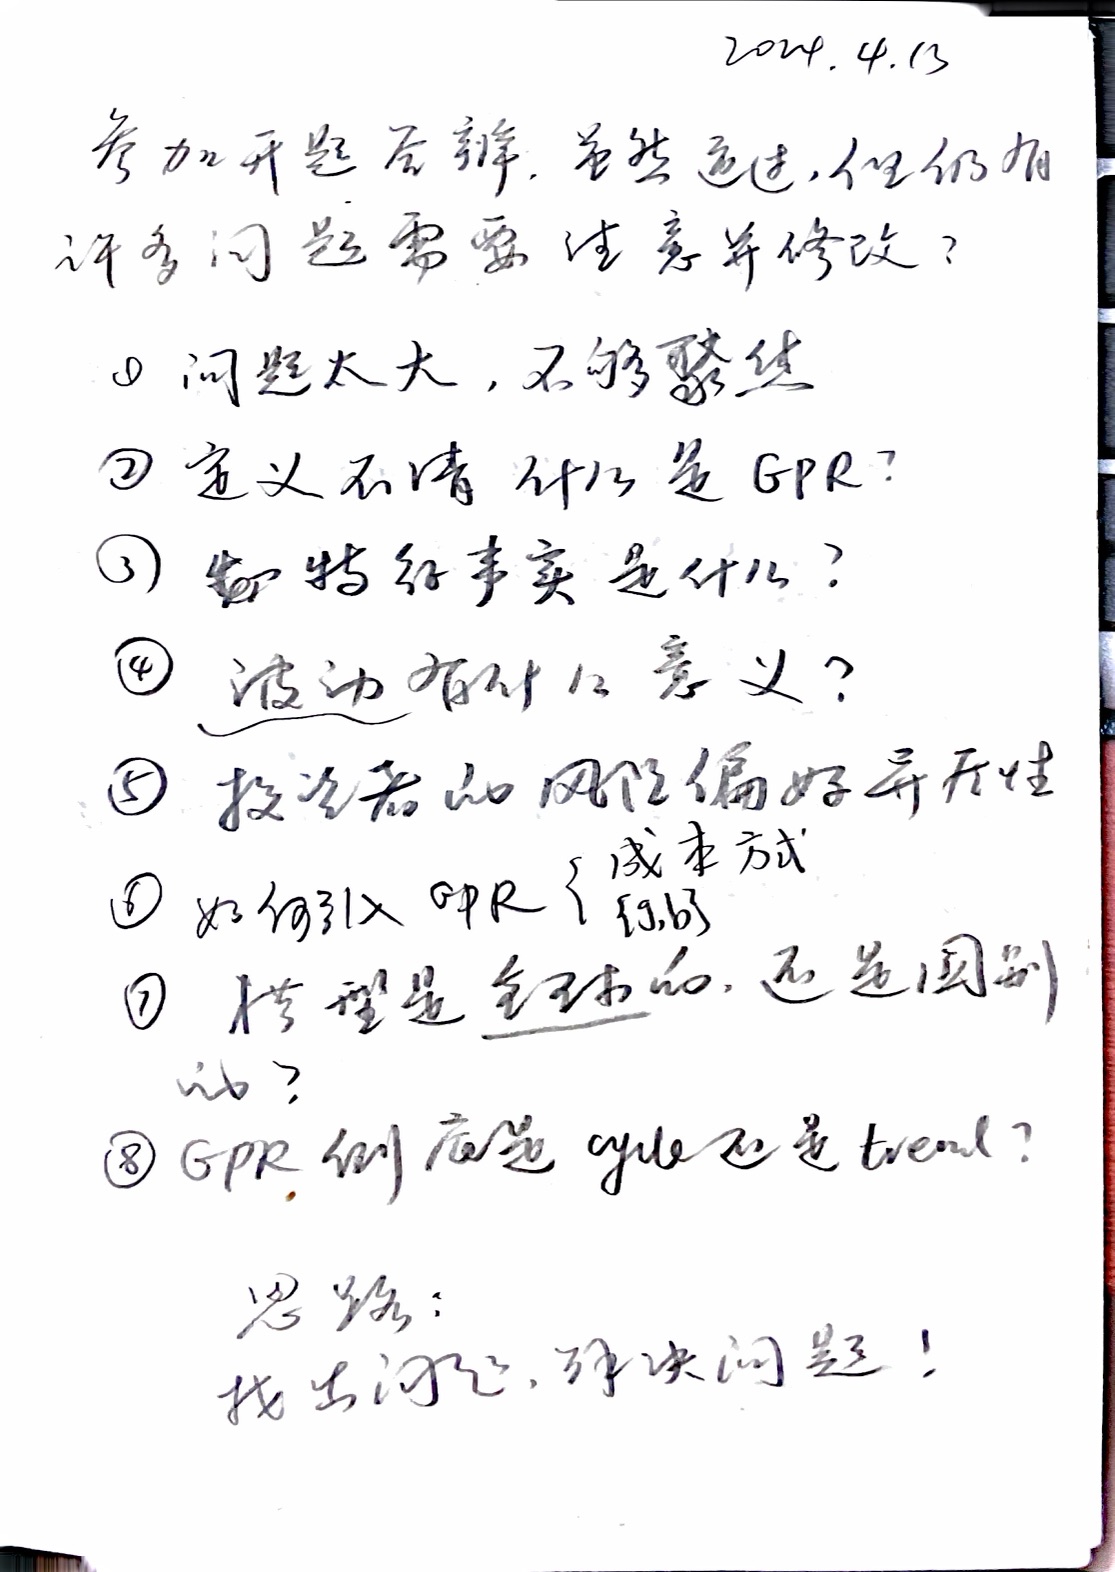 2024.4.13
参加开题答辩。虽然通过,但仍有
许多问题需要注意并修改?
① 问题太大,不够聚焦
② 定义不清 什么是GPR?
③ 特征事实是什么?
④ 波动有什么意义?
⑤ 投资者的风险偏好异质性
⑥ 如何引入 GPR { 成本方式
⑦ 模型是全球的,还是国别
的?
⑧ GPR 到底是 cycle 还是 trend?
思路:
找出问题,解决问题!